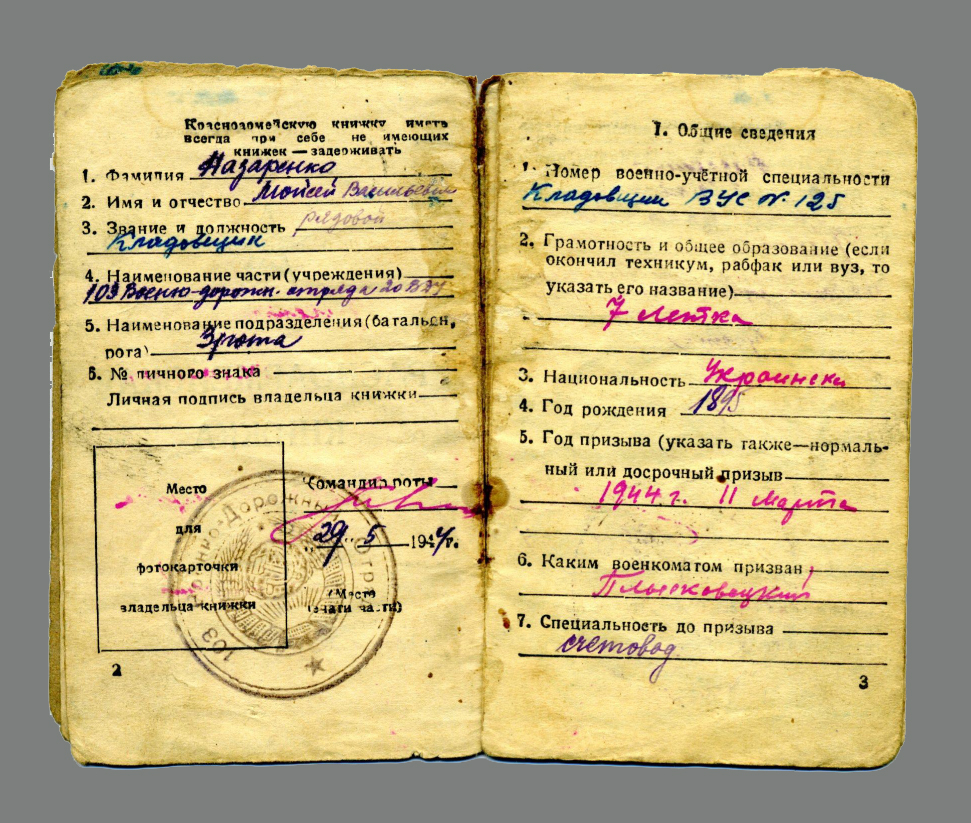 Красноармейскую книжку иметь
всегда при себе не имеющих
книжек — задерживать
1. Фамилия Назаренко
2. Имя и отчество Моисей Васильевич
3. Звание и должность рядовой
Кладовщик
4. Наименование части (учреждения)
103 Военно-дорожн. отряда 20 ВДУ
5. Наименование подразделения (батальон,
рота) рота
6. № личного знака
Личная подпись владельца книжки
Место
для
фотокарточки
владельца книжки
Командир роты
"29" 5 1944г.
(Место
печати части)
103 Военно-Дорожный
2
I. Общие сведения
1. Номер военно-учётной специальности
Кладовщик ВУС № 125
2. Грамотность и общее образование (если
окончил техникум, рабфак или вуз, то
указать его название)
7 летка
3. Национальность Украинск
4. Год рождения 1895
5. Год призыва (указать также—нормаль-
ный или досрочный призыв
1944 г. 11 Марта
6. Каким военкоматом призван
Плисковецкий
7. Специальность до призыва
счетовод
3